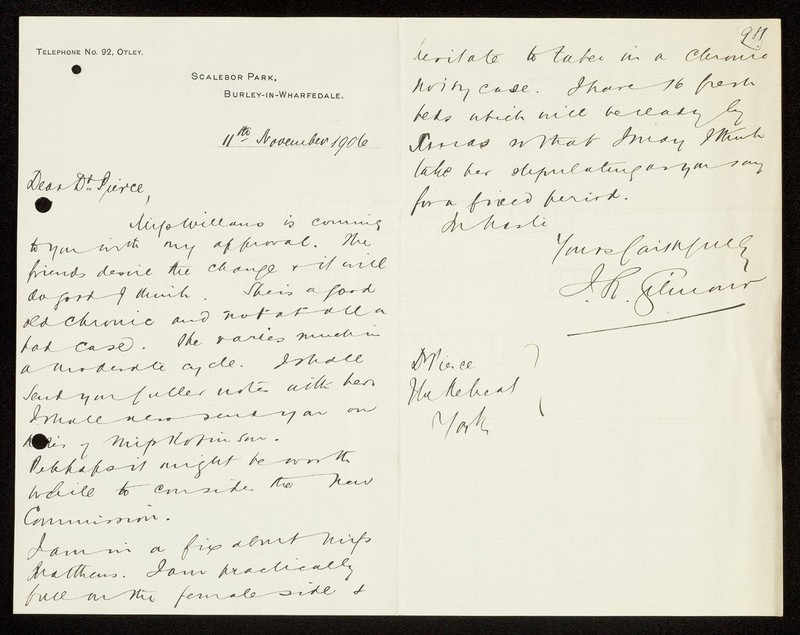 Telephone No. 92, Otley.
Scalebor Park,
Burley-in-Wharfedale.
11th November 1906
Dear Dr. Pierce,
Miss Willans is coming
to you with my approval. The
friends desire the change & it will
do good I think. She is a good
old chronic and not at all a
bad case. She varies much in
a moderate cycle. I shall
send you fuller notes with her.
I shall also send you on
notes of Miss Robinson.
Perhaps it might be worth
while to consider the New
Commission.
I am in a fix about Miss
Matthews. I am practically
full on the female side &
911
hesitate to take in a chronic
noisy case. I have 16 fresh
beds which will be ready by
Xmas so that I may I think
take her stipulating as you say
for a fixed period.
In haste
Yours faithfully
J. R. Gilmour
Dr Pierce
The Retreat
York